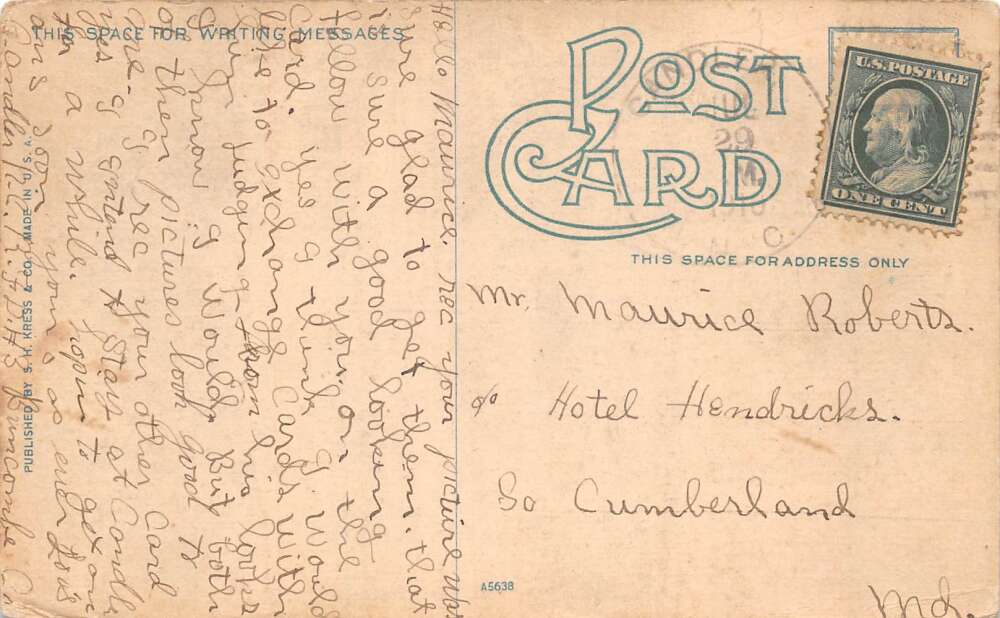 THIS SPACE FOR WRITING MESSAGES
POST
CARD
THIS SPACE FOR ADDRESS ONLY
U.S. POSTAGE
ONE CENT
CANDLER
29
M
1910
N. C.
Mr. Maurice Roberts.
c/o Hotel Hendricks.
So Cumberland
Md.
A5638
PUBLISHED BY S. H. KRESS & CO. MADE IN U.S.A.
Hello Maurice. rec your picture
Sure glad to get them. that
is sure a good looking
fellow with you. on the
Card. yes I think I would
like to exchange Cards with
him judging from his looks
I know I would. But both
of them pictures look good to
me. I rec your other Card
yes I entend to Stay at Candler
for a while. hopin to get one
Soon yours as ever
Candler N.C. R.F.D. #3 Buncombe Co